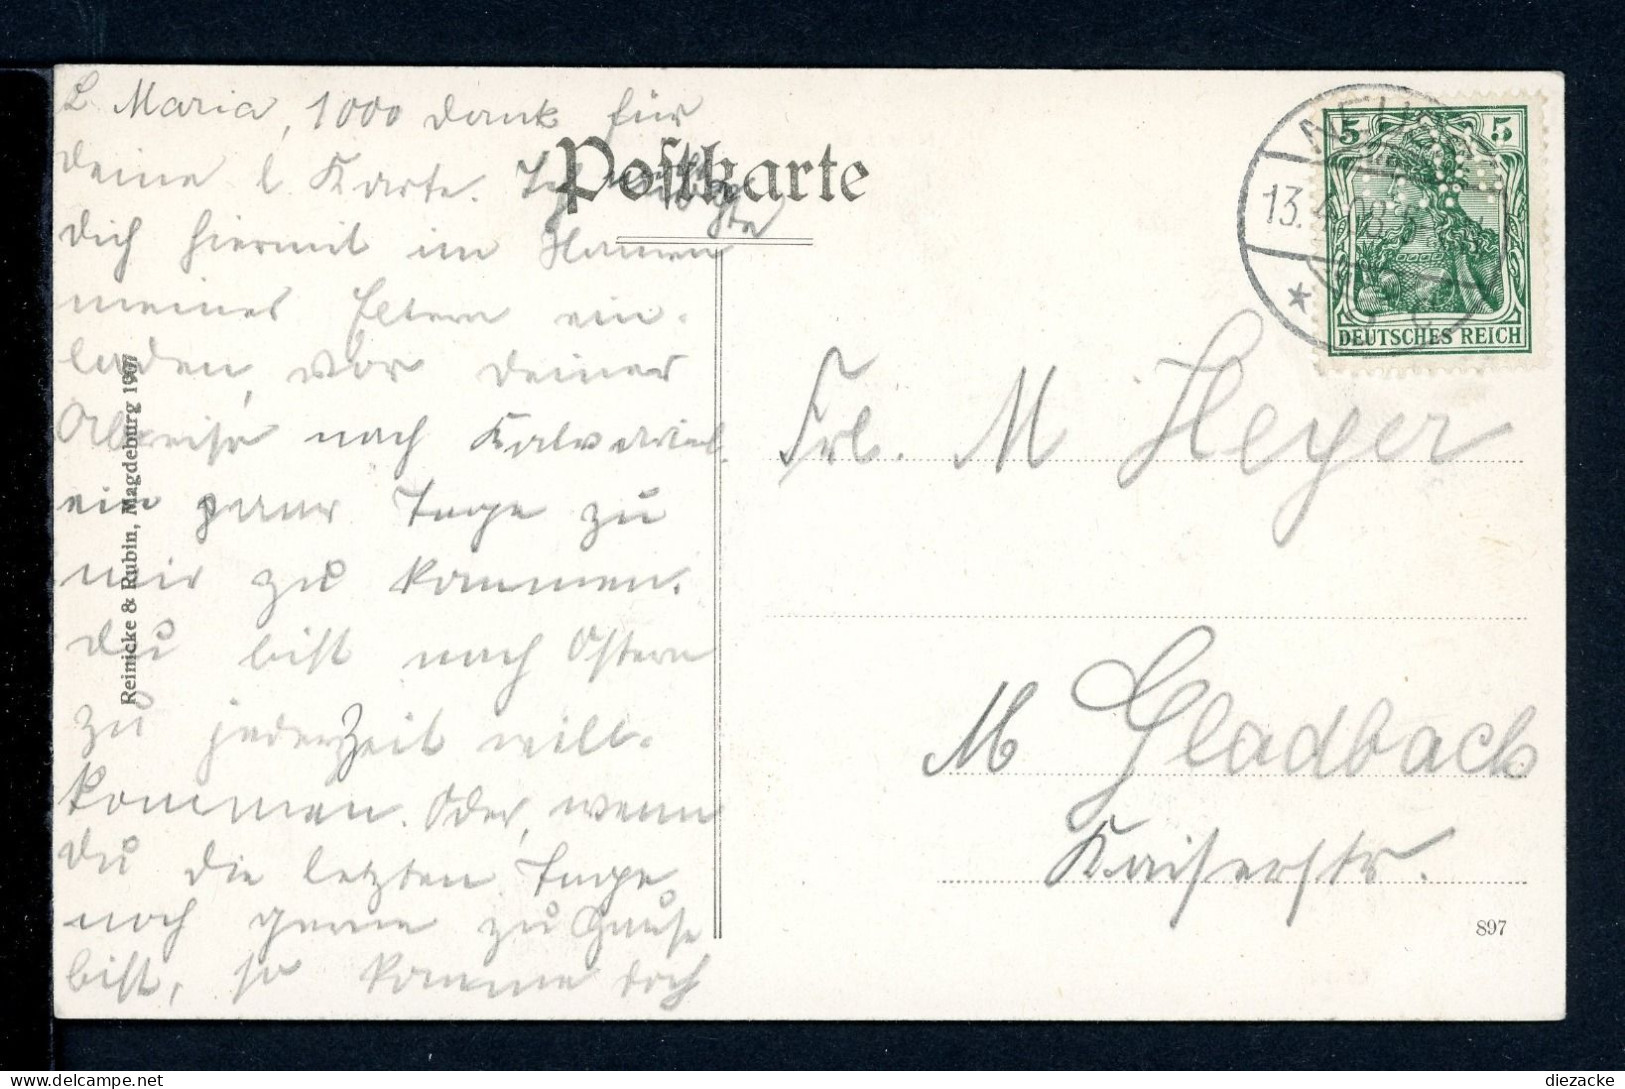 L Maria, 1000 Dank für
deine l. Karte. Ich möchte
dich hiermit im Namen
meines Eltern ein-
laden, vor deiner
Abreise nach
ein paar Tage zu
mir zu kommen.
Du bist nach Ostern
zu jederzeit will-
kommen. Oder, wenn
du die letzten Tage
noch gerne zu Hause
bist, so komme doch
Postkarte
Reinicke & Rubin, Magdeburg 1907
NEUSS
13.4.08.
5 5
DEUTSCHES REICH
Frl. M Heyer
M Gladbach
Kaiserstr.
897
diezacke